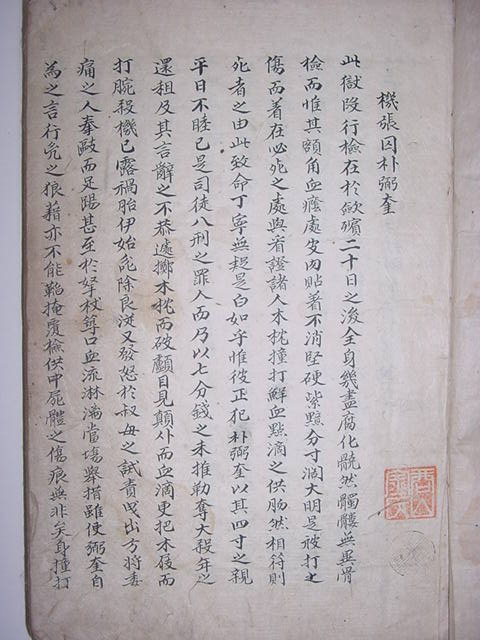 機張囚朴弼奎
此獄段行檢在於斂殯二十日之後全身幾盡腐化髐然髑髏無異骨
檢而惟其額角血癊處皮肉貼著不消堅硬紫黯分寸濶大明是被打之
傷而着在必死之處與看證諸人木枕撞打鮮血點滴之供脗然相符則
死者之由此致命丁寧無疑是白如乎惟彼正犯朴弼奎以其四寸之親
平日不睦已是司徒八刑之罪人而乃以七分錢之未推勒奪大殺年之
還租及其言辭之不恭遽擲木枕而破顱目見顛仆而血滴更把木屐而
打腕殺機已露禍胎伊始兺除良湺又發怒於叔母之試責曳出方將委
痛之人拳毆而足踢甚至於拏杖箠口血流淋滿當場舉措雖使弼奎自
為之言行兇之狼藉亦不能鞱掩覆檢供中屍體之傷痕無非矣身撞打